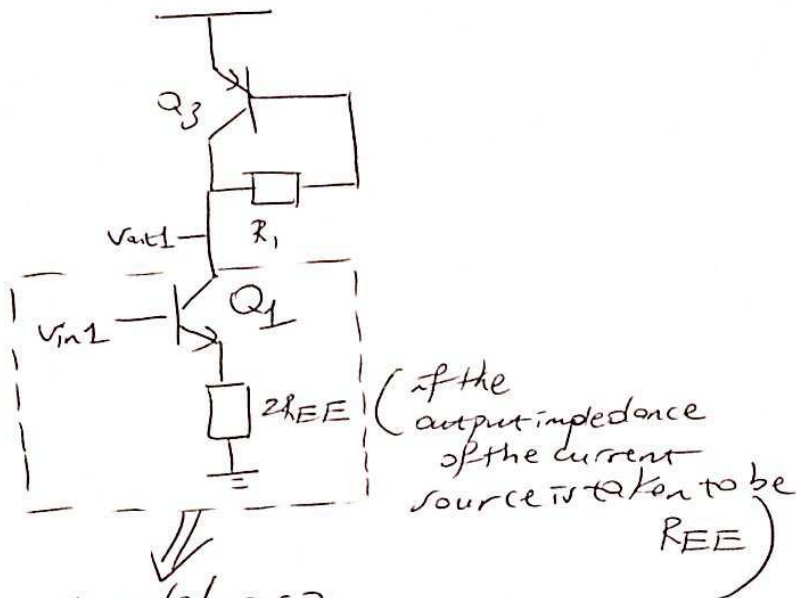 Q3
Vout1
R1
Vin1
Q1
2REE
(if the
output impedance
of the current
source is taken to be
REE)